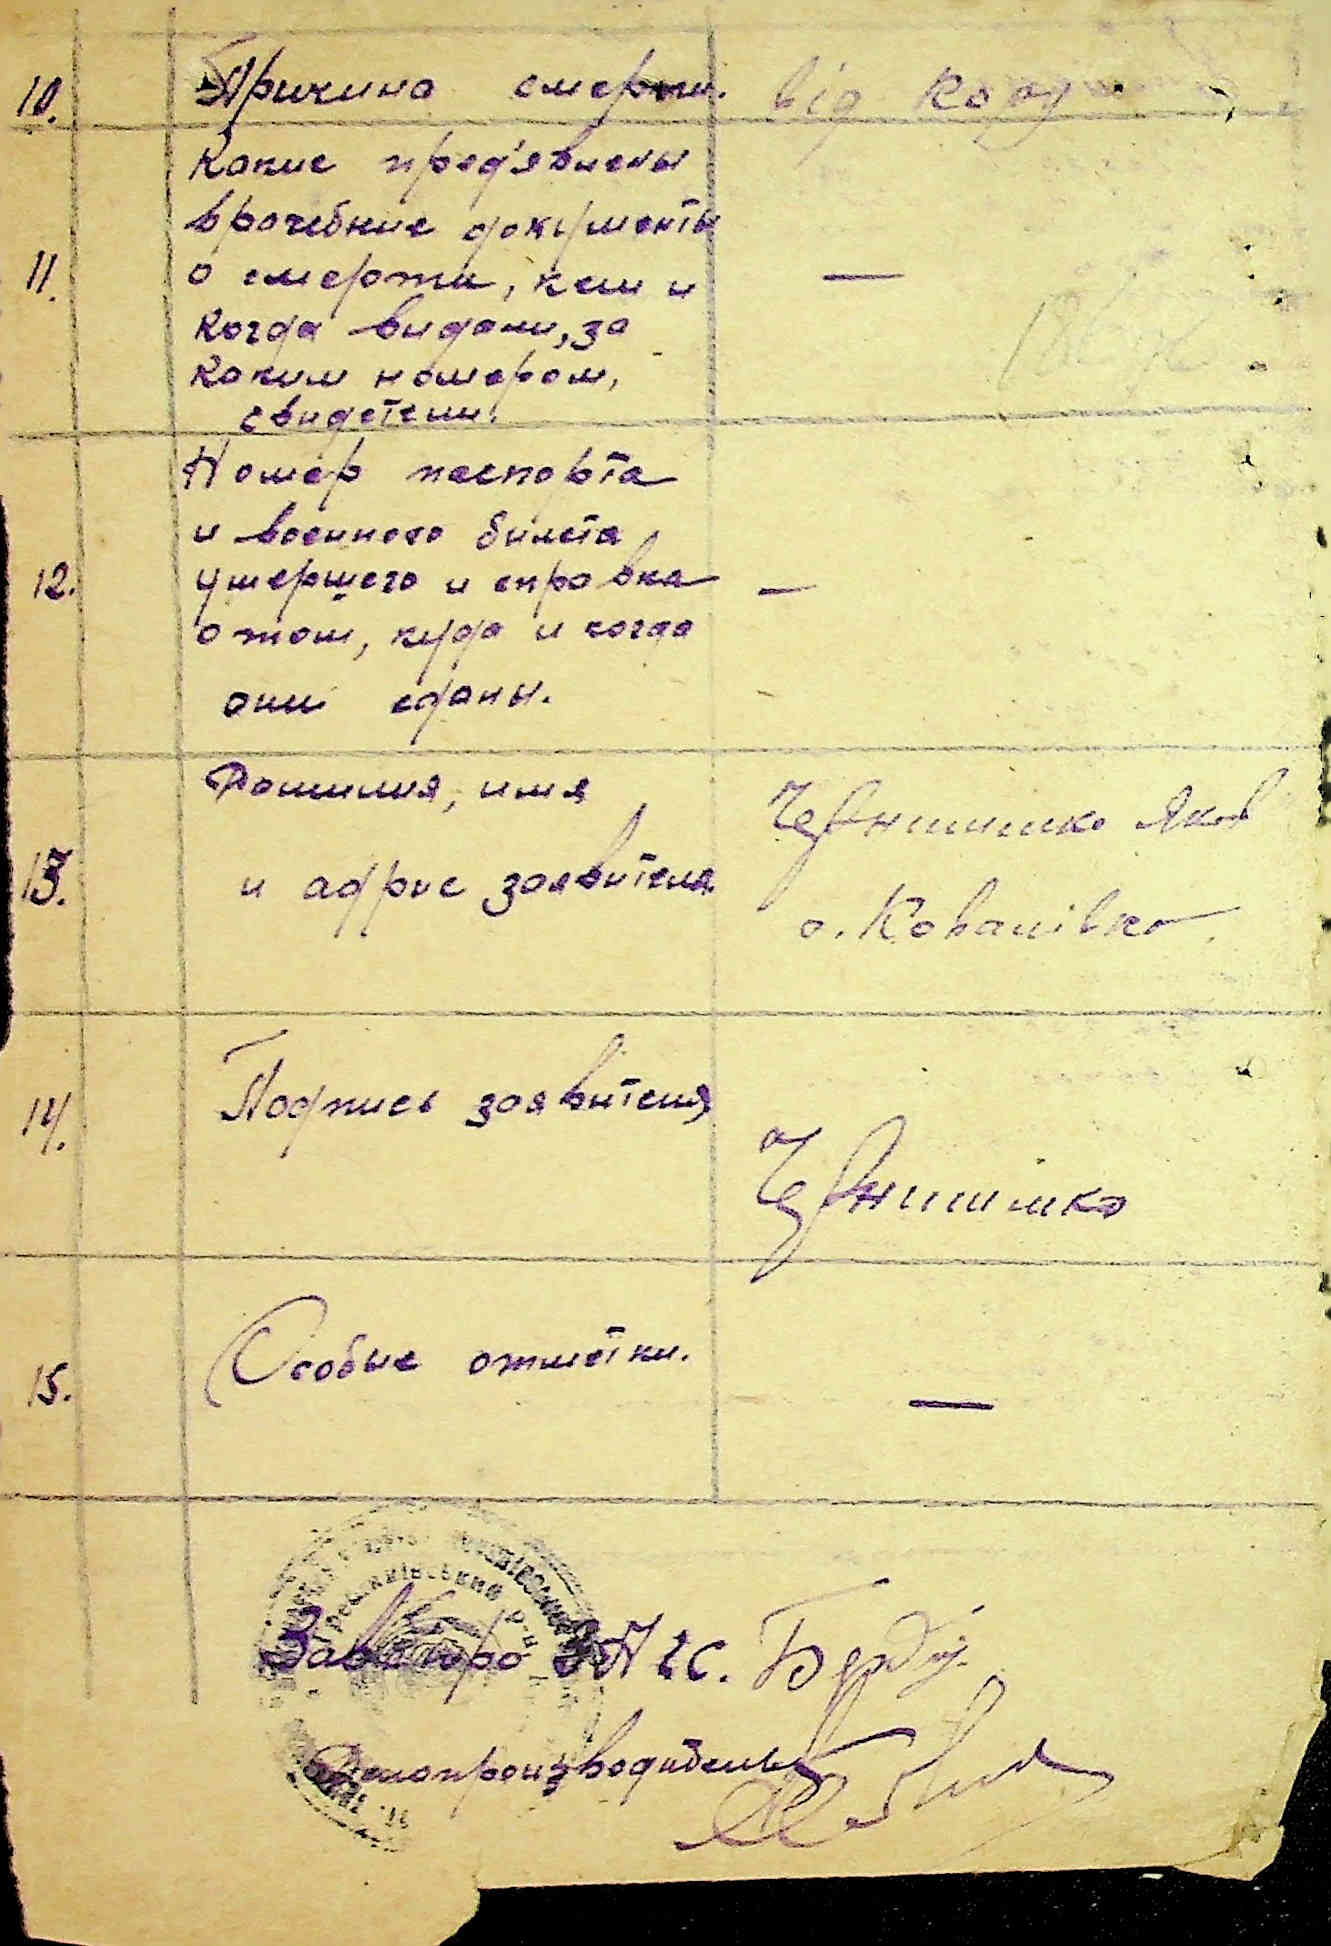 10. Причина смерти. від кору
Какие пред'явлены
врачебние документы
11. о смерти, кем и —
когда видани, за
каким номером,
свидетели.
Номер паспорта
и военного билета
12. умершего и справка —
о том, куда и когда
они сданы.
Фамилия, имя
Яков
13. и адрис заявителя
с. Ковалівка
14. Подпись заявителя
15. Особые отметки. —
Завбюро ЗАГС.
Делопроизводитель